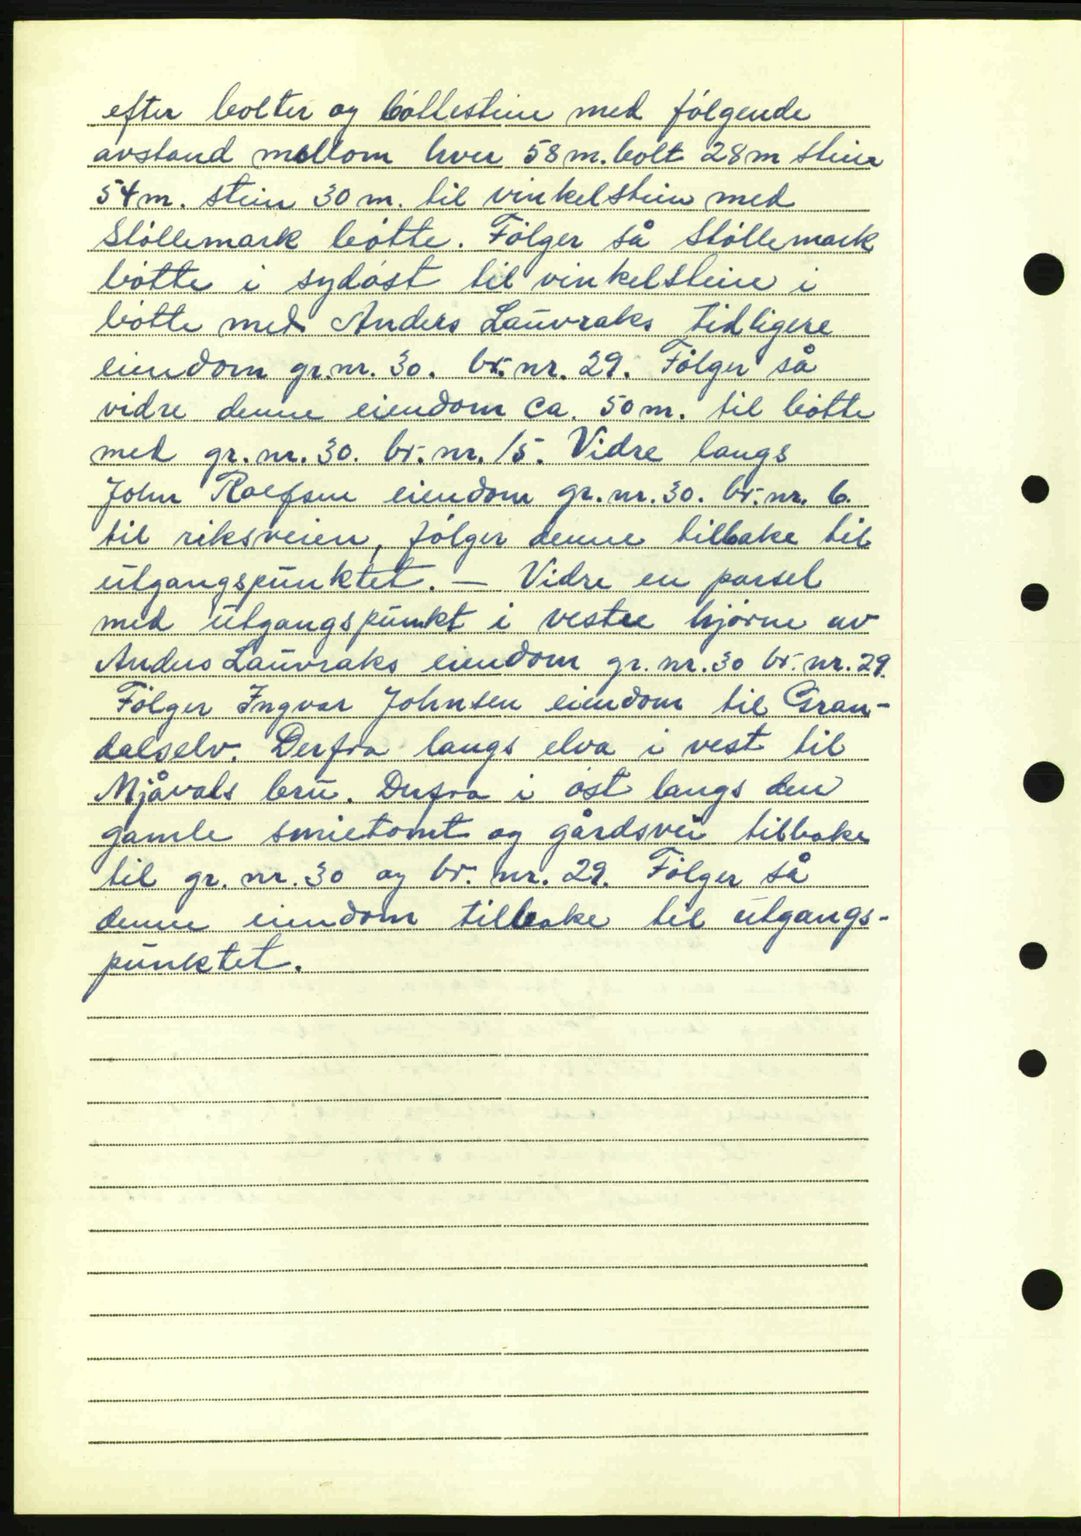 efter bolter og böllestein med følgende
avstand mellom hver 58 m. bolt 28 m stein
54 m. stein 30 m. til vinkelstein med
Støllemark bötte. Fölger så Støllemark
bötte i sydöst til vinkelsteine i
bötte med Anders Lauvraks tidligere
eiendom gr. nr. 30. br. nr. 29. Fölger så
vidre denne eiendom ca. 50 m. til bötte
med gr. nr. 30. br. nr. 15. Vidre langs
John Roefsen eiendom gr. nr. 30. br. nr. 6.
til riksveien, fölger denne tilbake til
utgangspunktet. — Vidre en parsel
med utgangspunkt i vestre hjörne av
Anders Lauvraks eiendom gr. nr. 30 br. nr. 29.
Fölger Ingvar Johnsen eiendom til Gran-
dalselv. Derfra langs elva i vest til
Mjåvats bru. Derfra i öst langs den
gamle smietomt og gårdsvei tilbake
til gr. nr. 30 og br. nr. 29. Fölger så
denne eiendom tilbake til utgangs-
punktet.